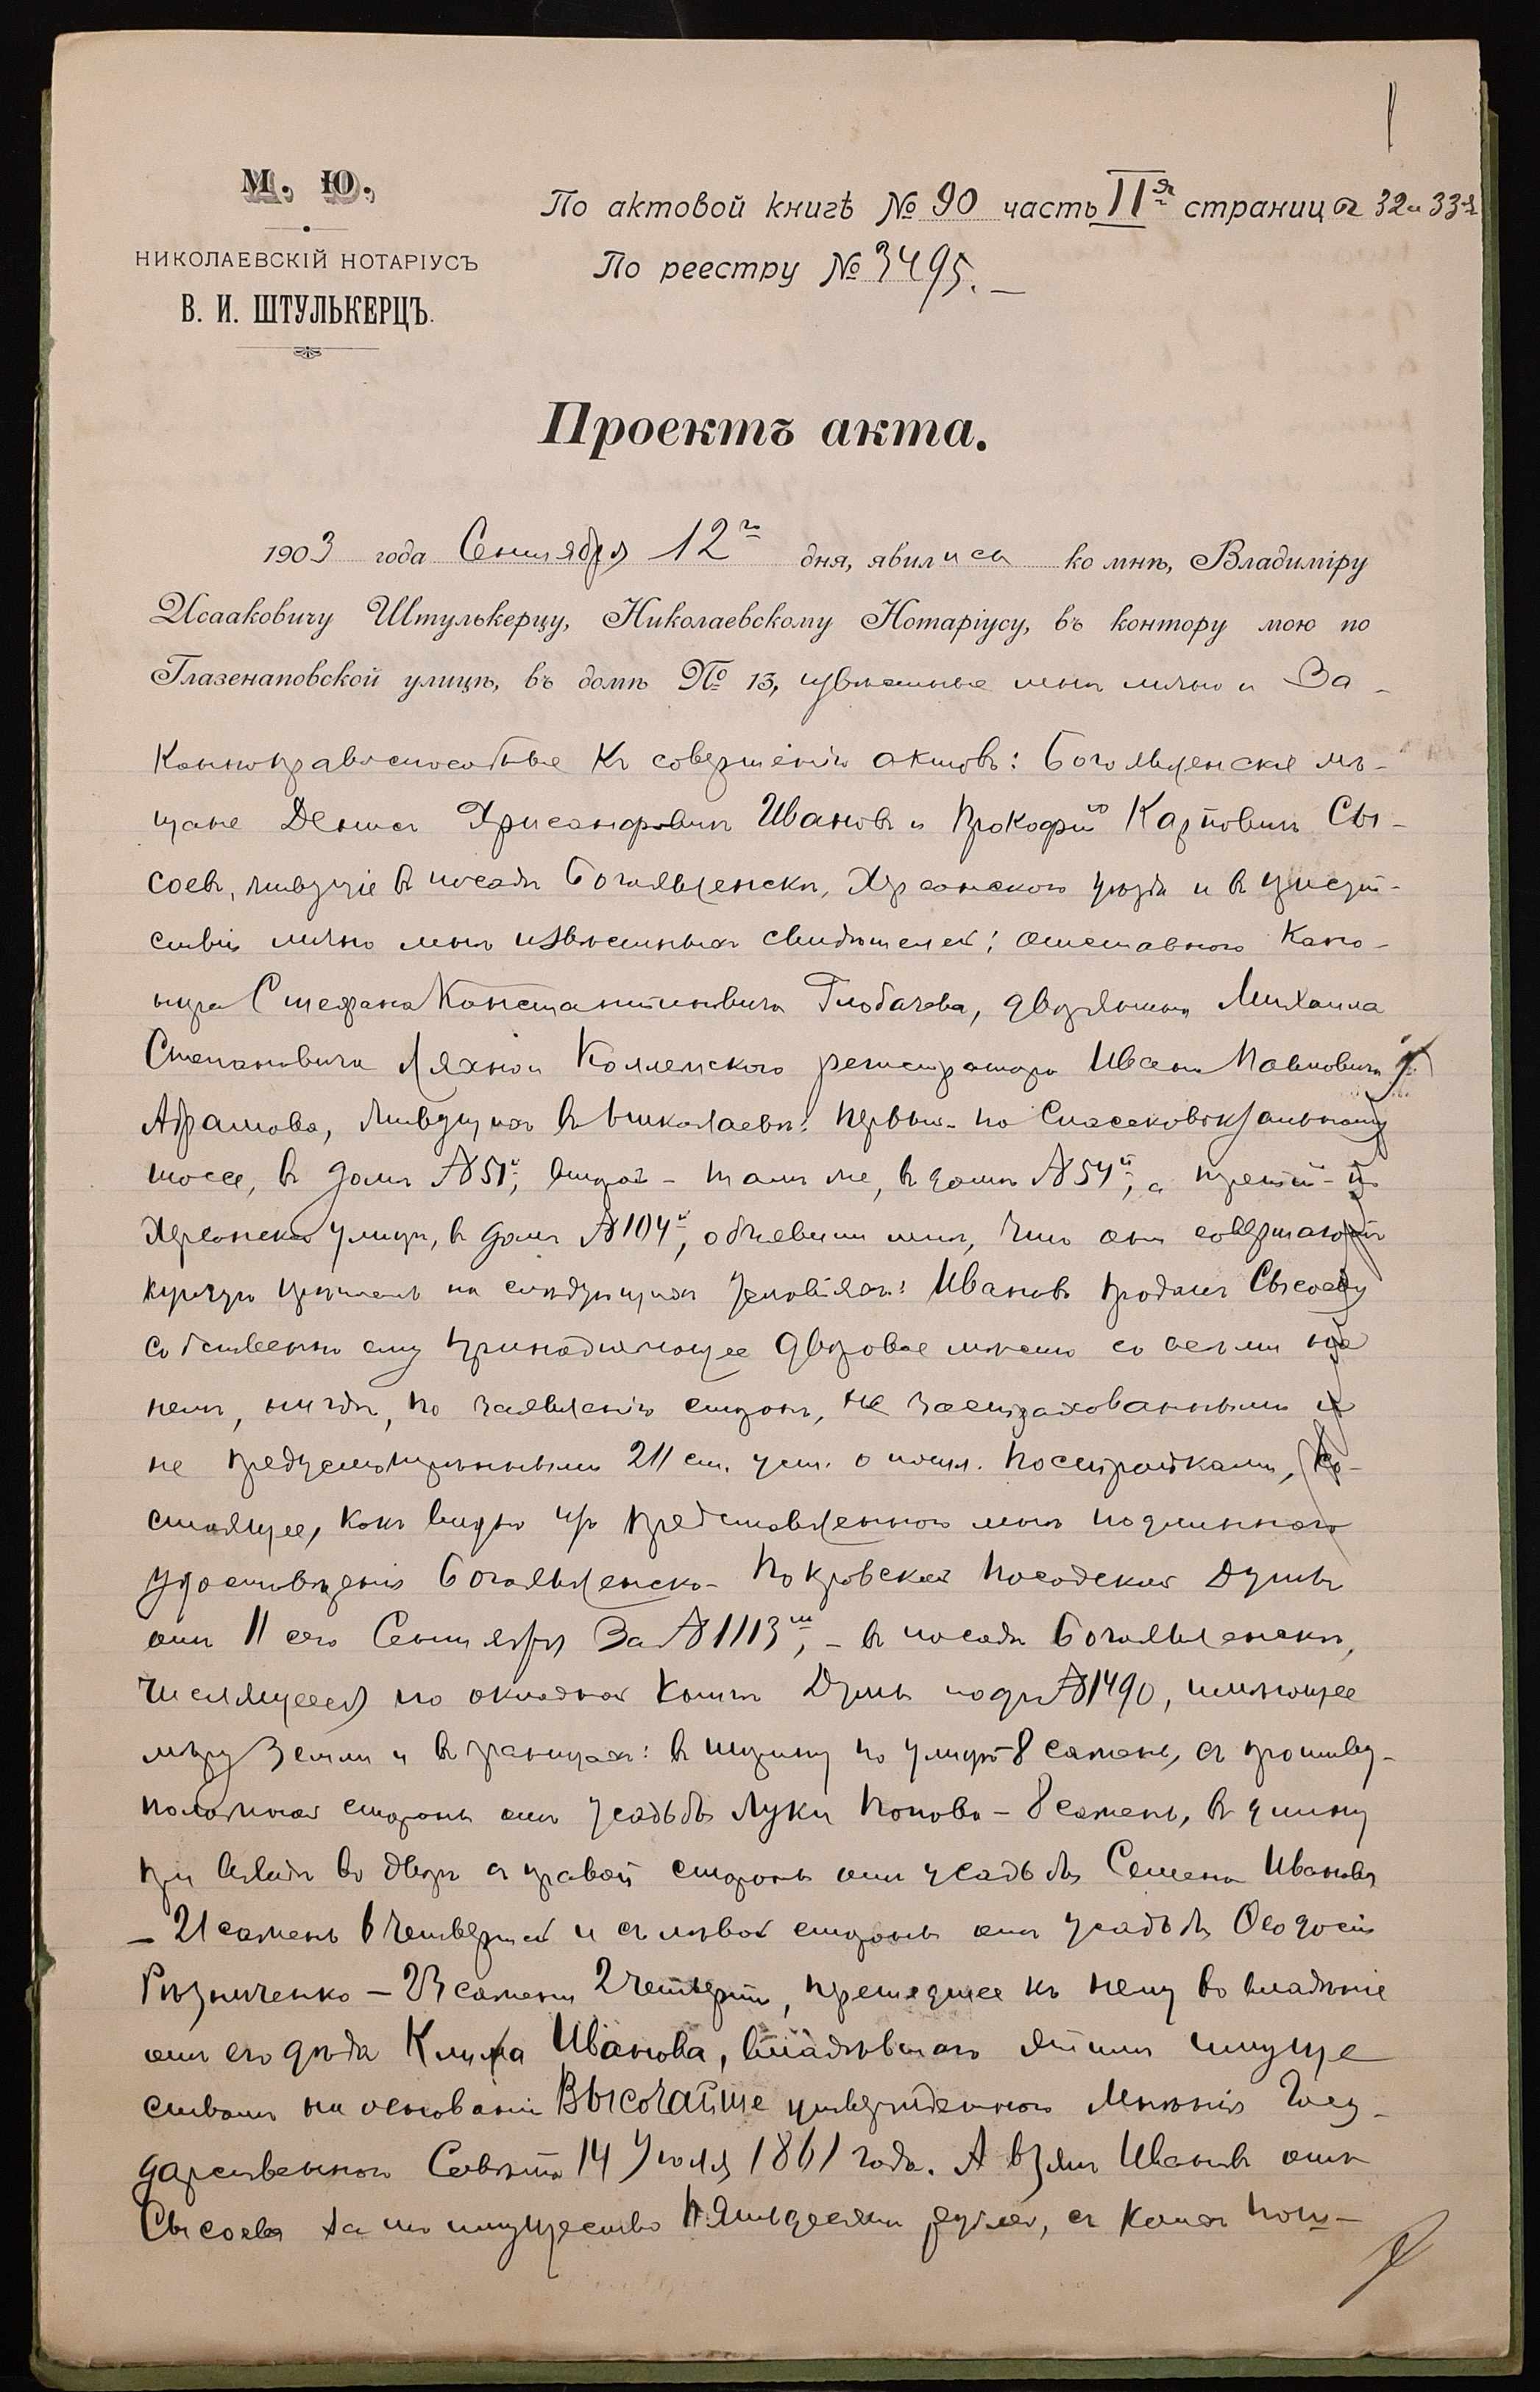 М. Ю.
НИКОЛАЕВСКІЙ НОТАРІУСЪ
В. И. ШТУЛЬКЕРЦЪ.
По актовой книгѣ № 90 часть II я страницы 32 и 33-я
По реестру № 3495. —
Проектъ акта.
1903 года Сентября 12 го дня, явились ко мнѣ, Владиміру
Исааковичу Штулькерцу, Николаевскому Нотаріусу, въ контору мою по
Глазенаповской улицѣ, въ домѣ № 13, извѣстные мнѣ лично и за-
коннправоспособные къ совершенію актовъ: Богоявленскіе мѣ-
щане Денисъ Хрисанфовичъ Ивановъ и Прокофій Карповичъ Сы-
соевъ, живущіе въ посадѣ Богоявленскѣ, Херсонскаго уѣзда и въ присут-
ствіи лично мнѣ извѣстныхъ свидѣтелей: отставного кано-
нира Стефана Константиновича Глобачева, дворянина Михаила
Степановича Ляхно и Коллежскаго регистратора Ивана Павловича
Абрамова, живущихъ въ Николаевѣ: первый по Спасско-вокзальному
шоссе, въ домѣ № 51й, второй - тамъ же, въ домѣ № 54й, а третій - по
Херсонской улицѣ, въ домѣ № 104й, объявили мнѣ, что они совершаютъ
купчую крѣпость на слѣдующихъ условіяхъ: Ивановъ продалъ Сысоеву
собственно ему принадлежащее дворовое мѣсто со всѣми на
немъ, нигдѣ, по заявленію сторонъ, не застрахованными и
не предусмотрѣнными 211 ст. уст. о пошл. постройками, со-
стоящее, какъ видно изъ представленнаго мнѣ подлиннаго
удостовѣренія Богоявленско-Покровской Посадской Думы
отъ 11 сего Сентября за № 1113 мъ, - въ посадѣ Богоявленскѣ,
числящееся по окладной книгѣ Думы подъ № 1490, имѣющее
мѣру земли и въ границахъ: въ ширину по улицѣ 8 сажень, съ противу-
положной стороны отъ усадьбы Луки Попова - 8 сажень, въ длину
при въѣздѣ во дворъ съ правой стороны отъ усадьбы Семена Иванова
- 21 сажень 1 четверть и съ лѣвой стороны отъ усадьбы Ѳеодосія
Рѣзниченко - 23 сажени 2 четверти, прешедшее къ нему во владѣніе
отъ его дѣда Клима Иванова, владѣвшаго этимъ имуще
ствомъ на основаніи Высочайше утвержденнаго Мнѣнія Госу-
дарственнаго Совѣта 14 Іюля 1861 года. А взялъ Ивановъ отъ
Сысоева за то имущество пятьдесятъ рублей, съ коихъ пош-